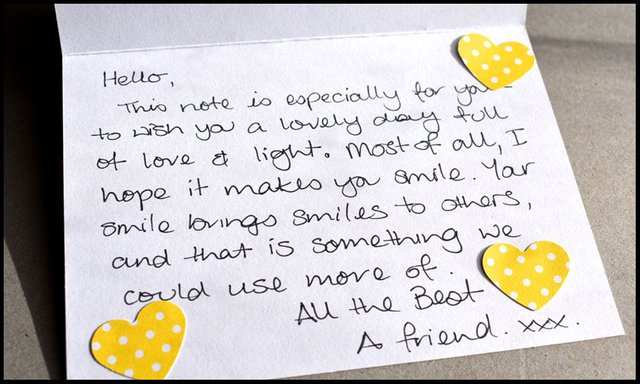 Hello,
This note is especially for you -
to wish you a lovely day full
of love & light. Most of all, I
hope it makes you smile. Your
smile brings smiles to others,
and that is something we
could use more of.
All the Best
A friend. xxx.